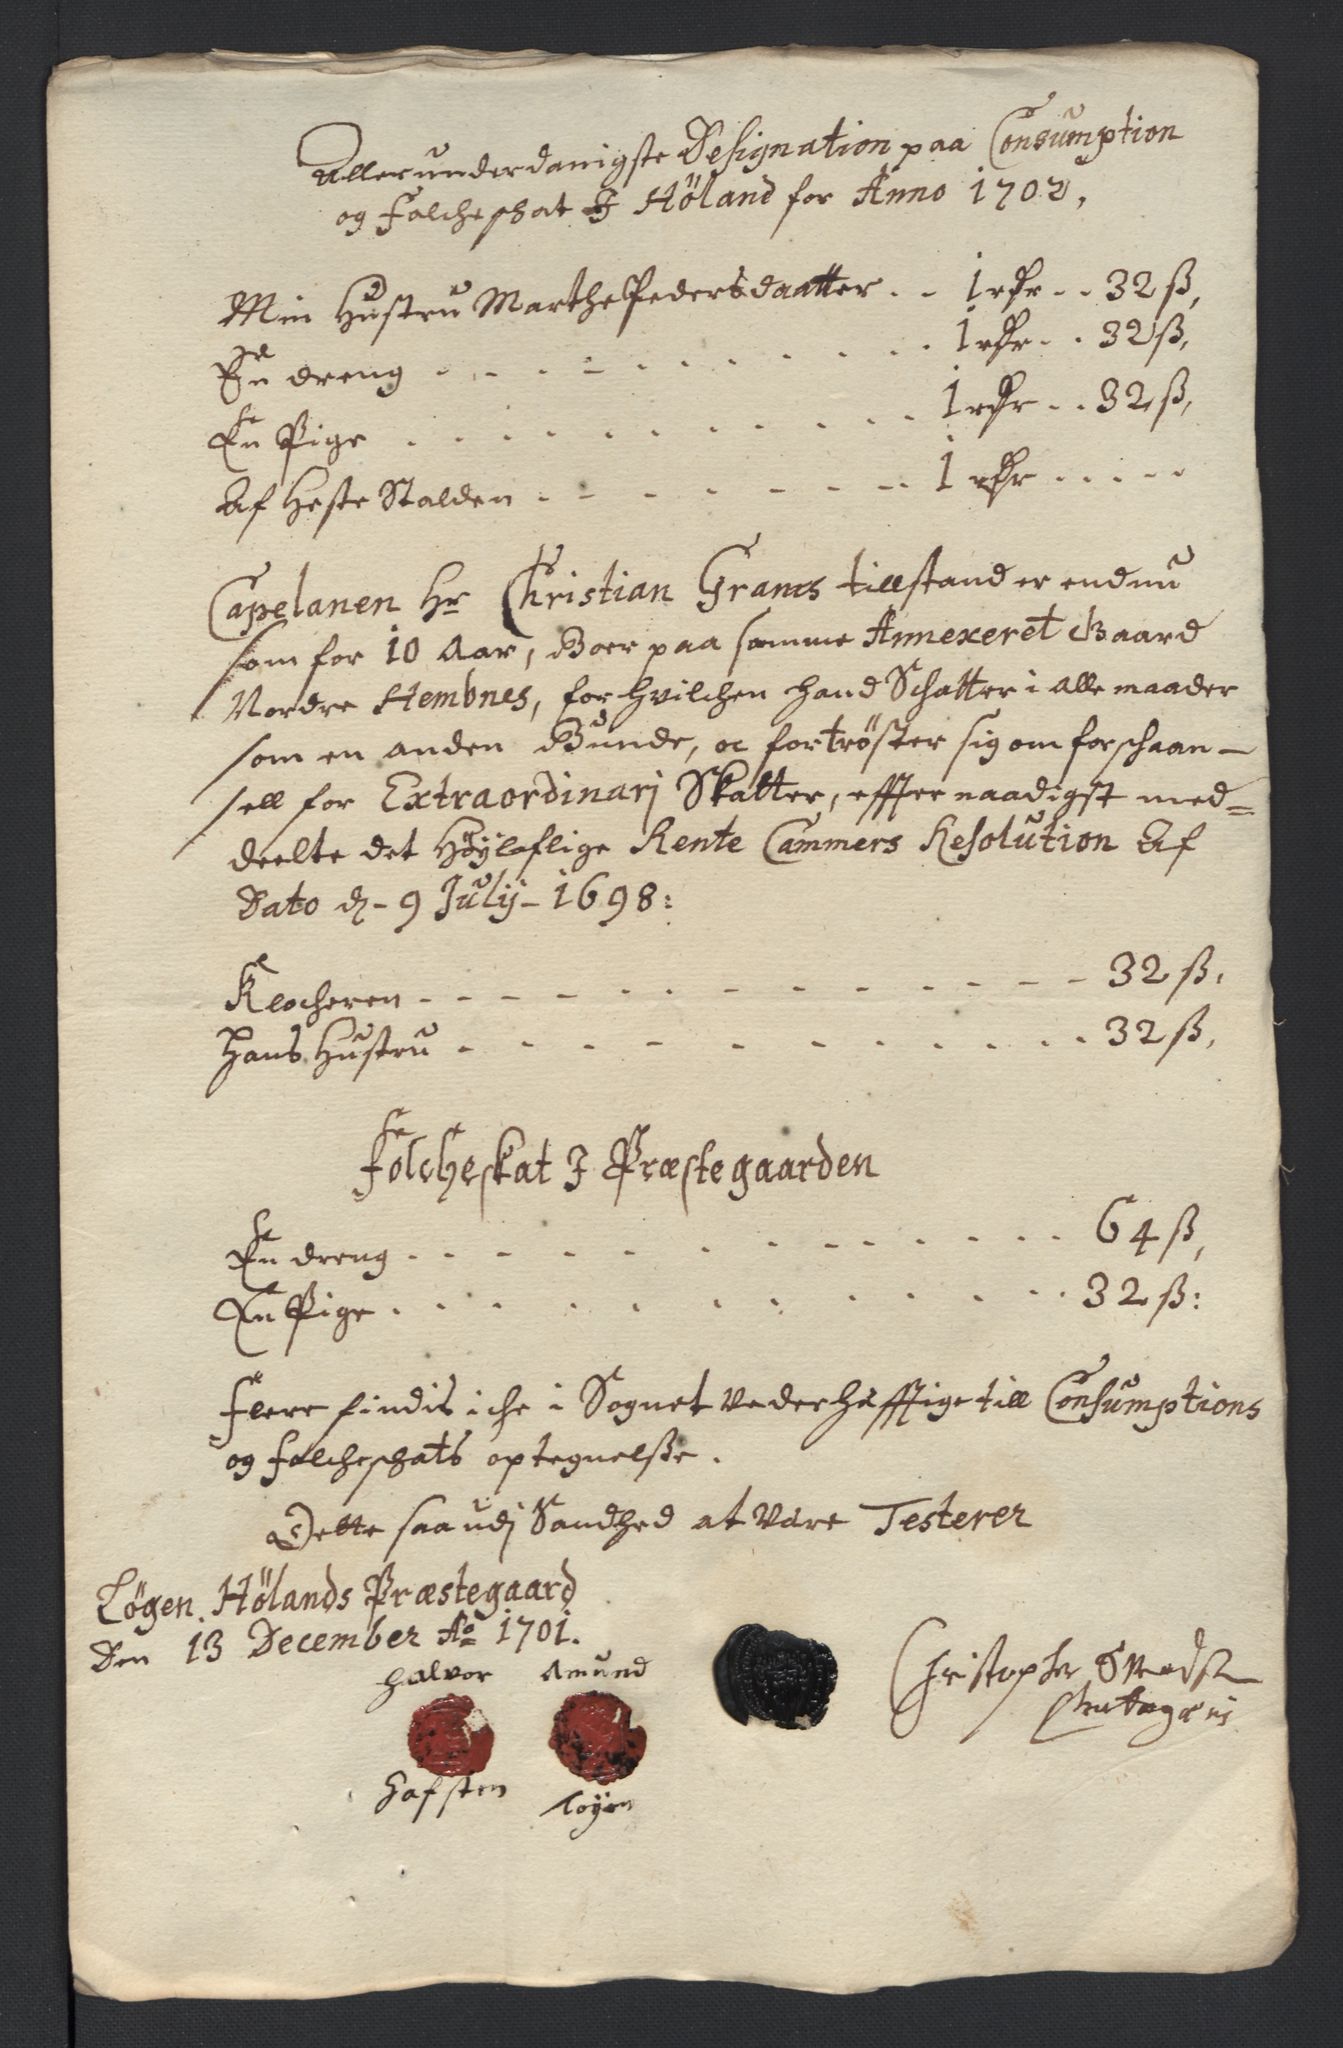 Allerunderdanigste Designation paa Consumption
og Folcheschat I Höland for Anno 1702,
Min Hustru Marthe Pedersdaatter . . 1 rdr . . 32 ß,
En dreng . . . . . . . . . . 1 rdr . . 32 ß,
En Pige . . . . . . . . . . 1 rdr . . 32 ß,
Af Heste Stalden . . . . . . . 1 rdr . . . . .
Capelanen Hr Christian Grams tillstand er endnu
som for 10 Aar, Boer paa samme Annexeret Gaard
Nordre Hembnes, for hvilchen hand Schatter i alle maader
som en anden Bunde, oc fortröster sig om forschaan-
sell for Extraordinarj Skatter, effter naadigst med=
deelte det Höÿloflige Rente Cammers Resolution Af
Dato d. 9 Julij - 1698:
Klocheren - - - - . . - - - - - - - 32 ß,
Hans Hustru . . . . . . . . . . 32 ß,
Folcheskat I Præstegaarden
En dreng . . . . . . . . . . . . 64 ß,
En Pige . . . . . . . . . . . 32 ß:
Flere findis iche i Sognet vederhefftige till Consumptions
og Folcheschats optegnelße.
Dette saa udj Sandhed at være Testerer
Løgen Hölands Præstegaard
Den 13 December Ao 1701.
Halvor Amund
Christopher
Hafsten Löyen